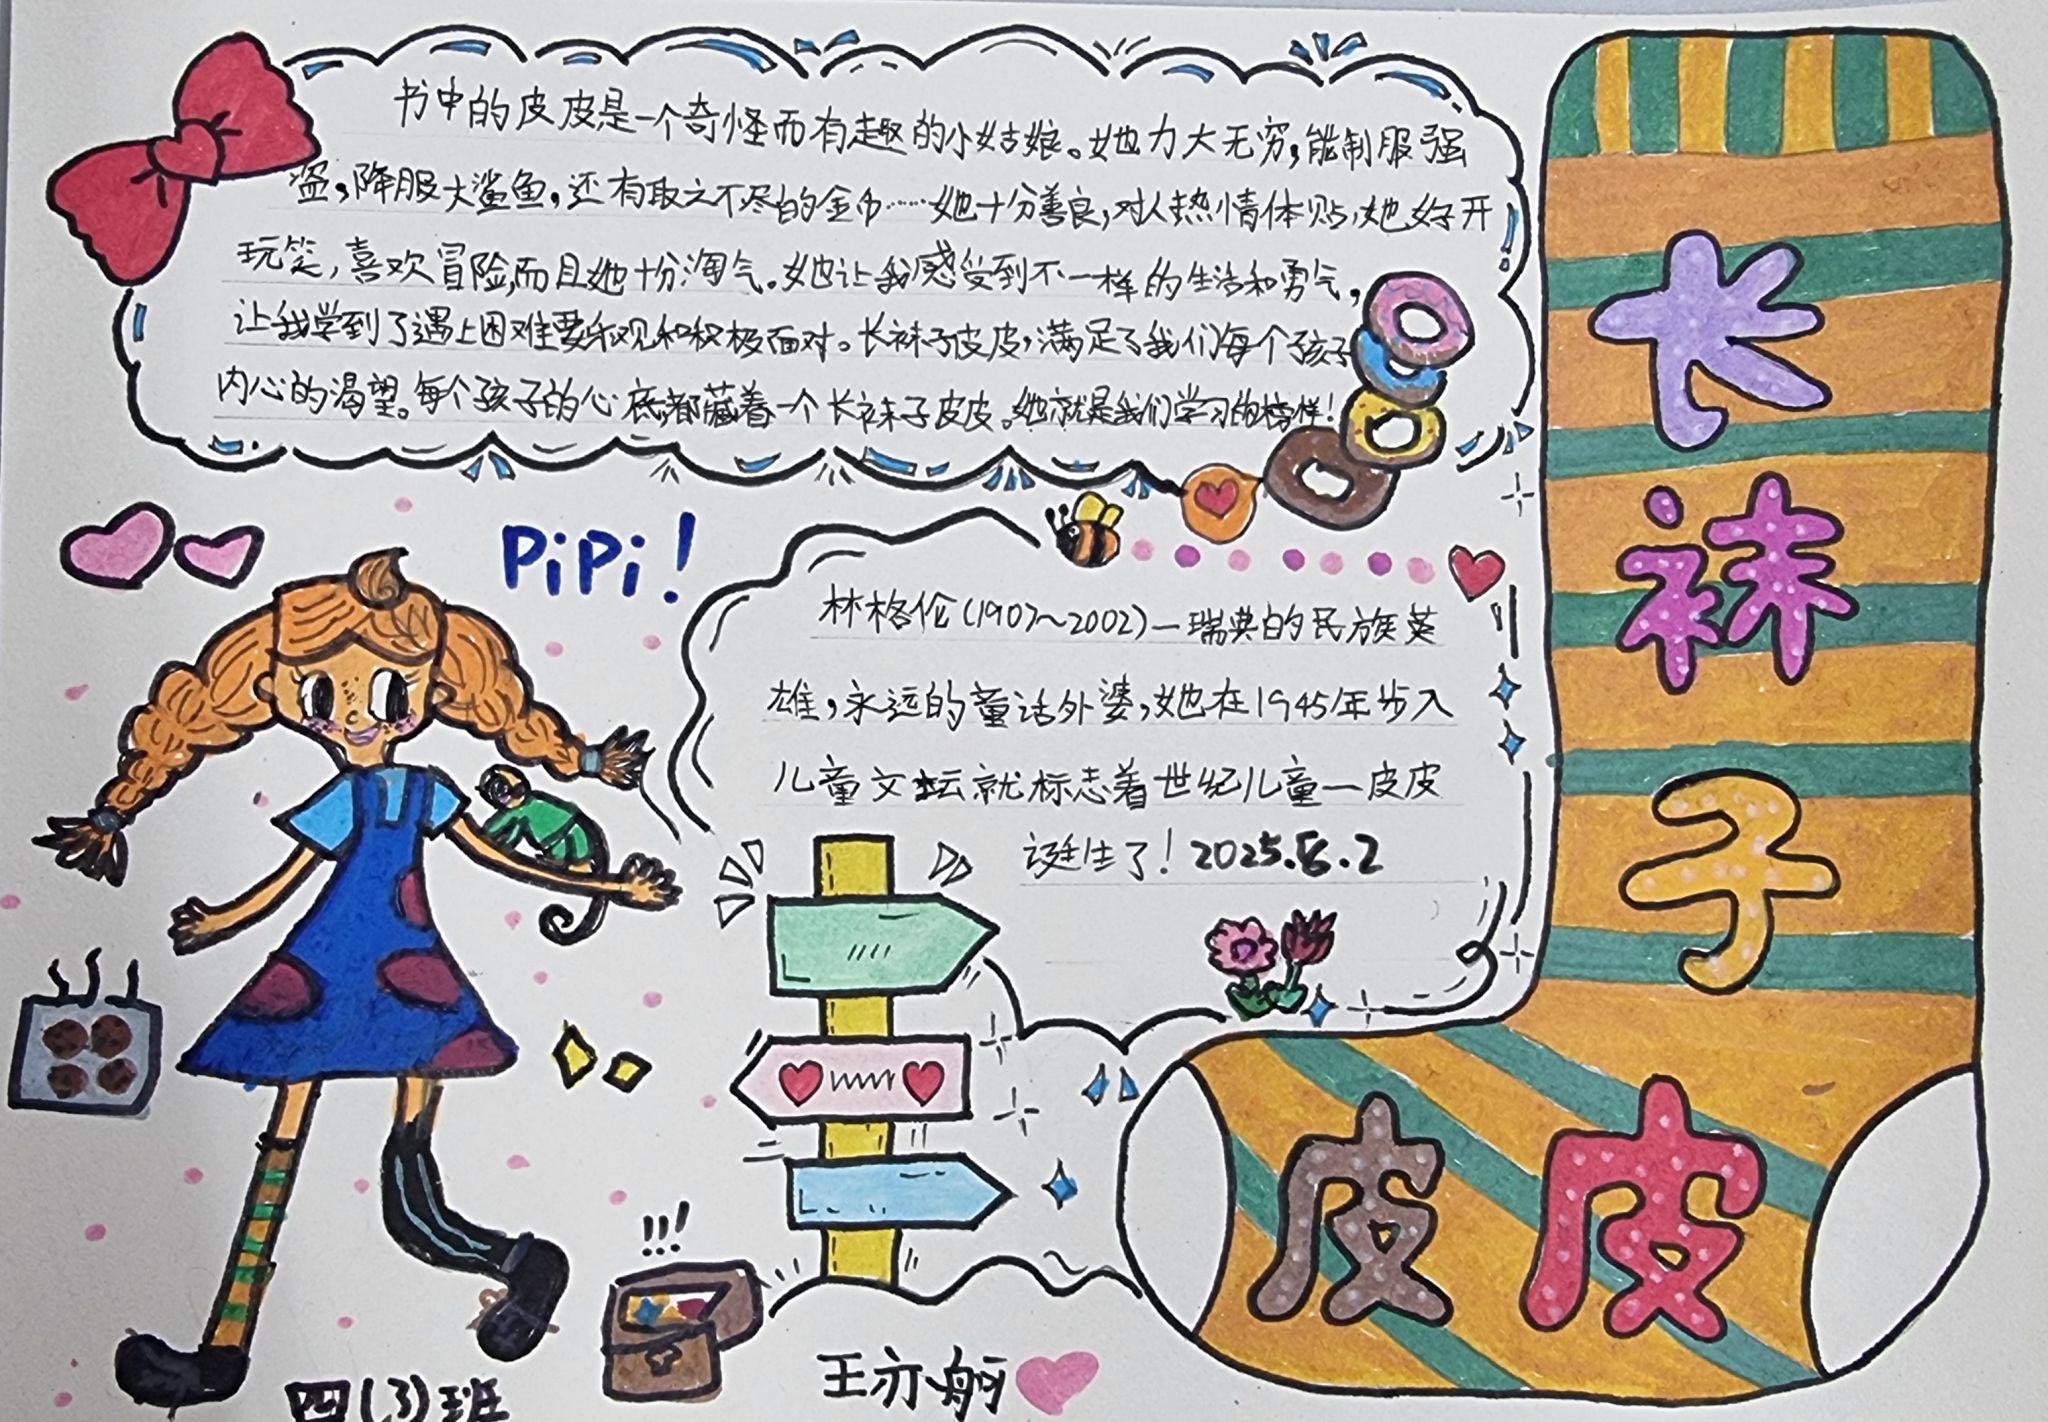 书中的皮皮是一个奇怪而有趣的小姑娘。她力大无穷，能制服强
盗，降服大鲨鱼，还有取之不尽的金币……她十分善良，对人热情体贴，她好开
玩笑，喜欢冒险，而且她十分淘气。她让我感受到不一样的生活和勇气，
让我学到了遇上困难要乐观和积极面对。长袜子皮皮，满足了我们每个孩子
内心的渴望。每个孩子的心底都藏着一个长袜子皮皮。她就是我们学习的榜样！
PiPi！
林格伦(1907～2002)—瑞典的民族英
雄，永远的童话外婆，她在1945年步入
儿童文坛就标志着世纪儿童—皮皮
诞生了！2025.5.2
长
袜
子
皮皮
四(3)班
王亦舸